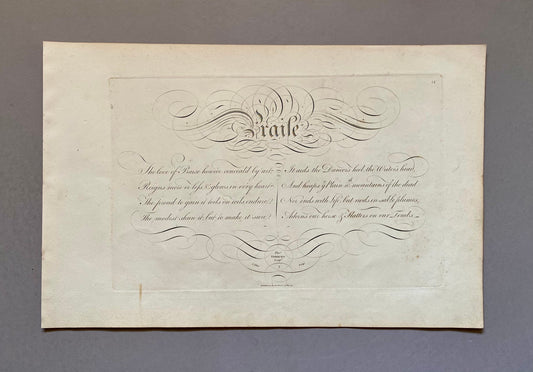 Praise
The love of Praise howe'er conceal'd by art,
Reigns more or less & glows in ev'ry heart
The proud to gain it toils on toils endure;
The modest shun it, but to make it sure!
It aids the Dancer's heel, the Writer's head,
And heaps ye Plain wth mountains of the dead
Nor ends with life but nods in sable plumes,
Adorns our herse & flatters on our Tombs.